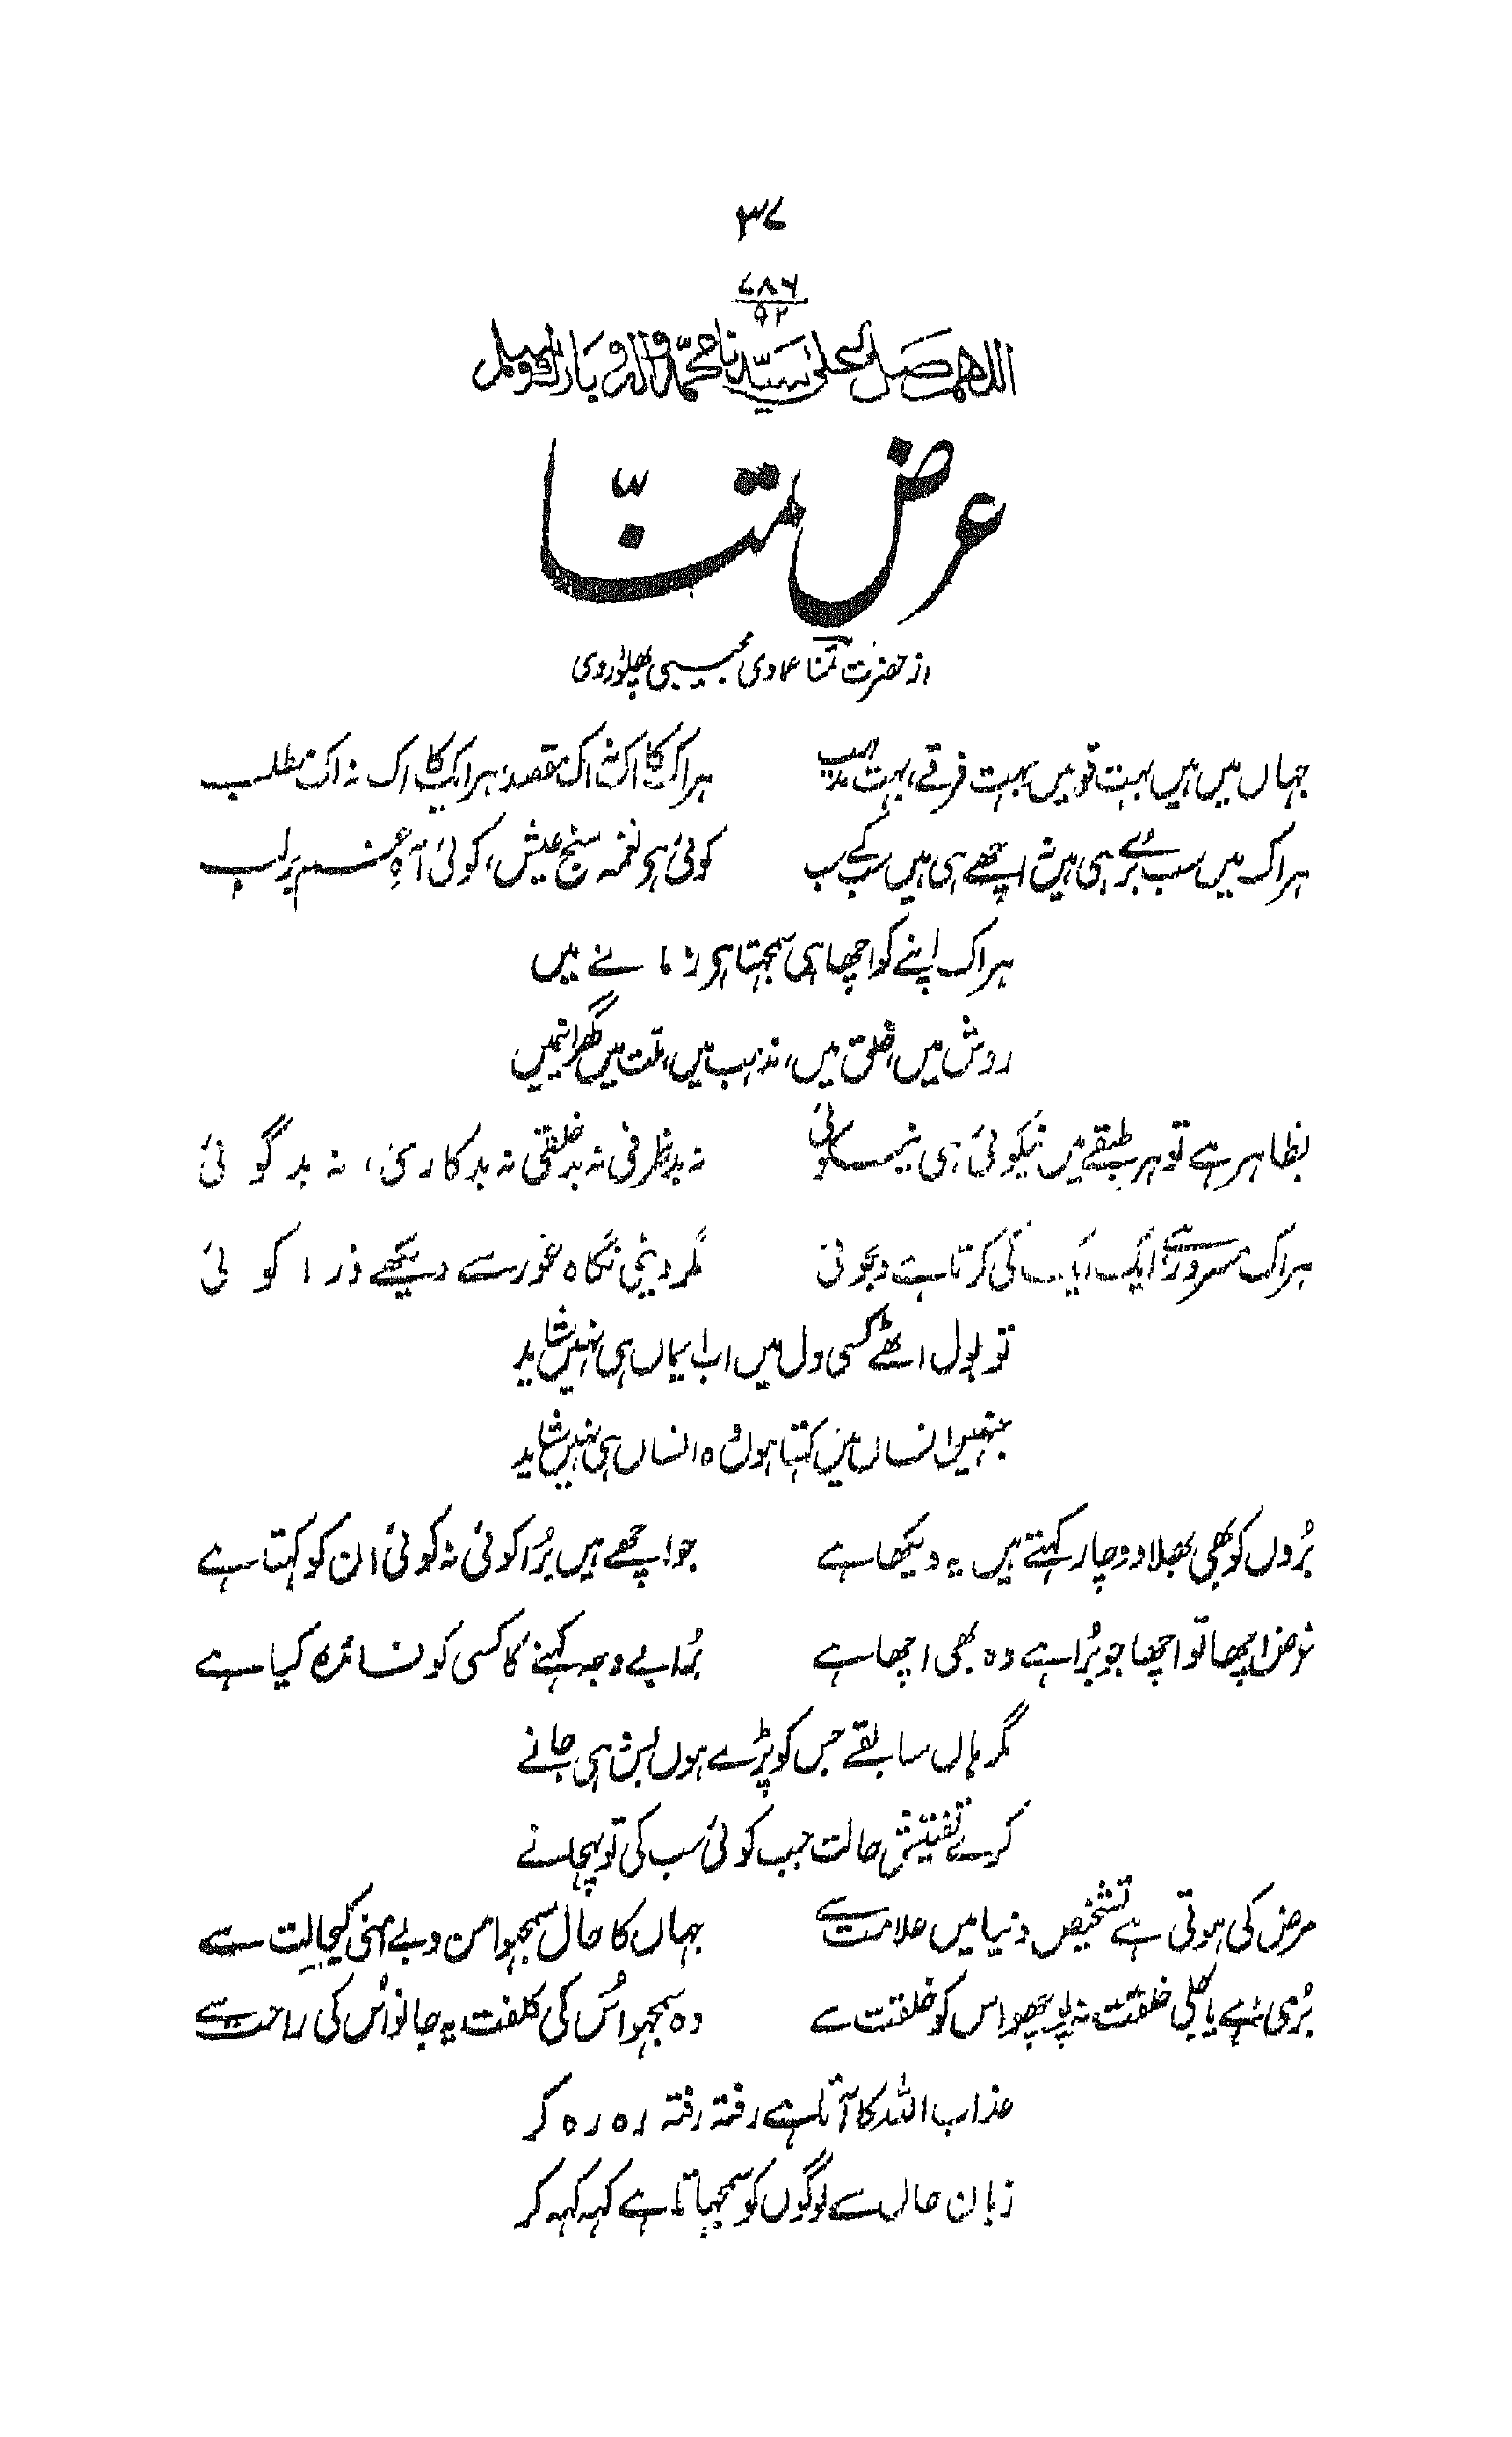 ۳۷
۷۸۶
۹۲
اللهم صل علی سیدنا محمد و اله و بارک وسلم
عرض تمنّا
از حضرت تمنا عمادی مجیبی پھلواروی
جہاں میں ہیں بہت قومیں بہت فرقے، بہت مذہب ہر اک کا اک نہ اک مقصد، ہر ایک کا اک نہ اک مطلب
ہر اک میں سب بُرے ہی ہیں نہ اچھے ہی ہیں سب کے سب کوئی ہو نغمہ سنج عیش، کوئی آہِ غم بر لب
ہر اک اپنے کو اچھا ہی سمجھتا ہو زمانے میں
روش میں، خلق میں، مذہب میں، ملت میں گھرانے میں
بظاہر ہے تو ہر طبقے میں نیکوئی ہی نیکوئی نہ بدظرفی نہ بدخلقی نہ بدکاری، نہ بدگوئی
ہر اک مسرور ہے ایک ایک کی کرتا ہے دلجوئی مگر دینی نگاہ غور سے دیکھے ذرا کوئی
تو بول اٹھے کسی دل میں اب ایماں ہی نہیں شاید
جنھیں انساں میں کہتا ہوں وہ انساں ہی نہیں شاید
بُروں کو بھی بھلا دو چار کہتے ہیں یہ دیکھا ہے جو اچھے ہیں بُرا کوئی نہ کوئی ان کو کہتا ہے
غرض اچھا تو اچھا جو بُرا ہے وہ بھی اچھا ہے بُرا بے وجہ کہنے کا کسی کو فائدہ کیا ہے
مگر ہاں سابقے جس کو پڑے ہوں بس وہی جانے
کرے تفتیش حالت جب کوئی سب کی تو پہچانے
مرض کی ہوتی ہے تشخیص دنیا میں علامت سے جہاں کا حال سمجھو امن و بے امنی کی حالت سے
بُری ہے یا بھلی خلقت نہ پوچھو اس کو خلقت سے وہ سمجھو اُس کی کلفت، یہ جانو اُس کی راحت سے
عذاب اللہ کا آتا ہے رفتہ رفتہ رہ رہ کر
زبان حال سے لوگوں کو سمجھاتا ہے کہہ کہہ کر